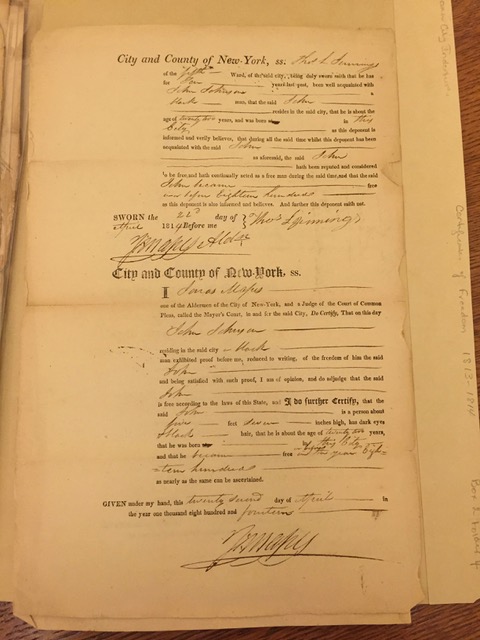 City and County of New-York, ss: Thos L Jinnings
of the fifth Ward, of the said city, being duly sworn saith that he has
for Ten years last past, been well acquainted with
John Johnson a
black man, that the said John
resides in the said city, that he is about the
age of twenty two years, and was born in this
City as this deponent is
informed and verily believes, that during all the said time whilst this deponent has been
acquainted with the said John
as aforesaid, the said John
hath been reputed and considered
to be free, and hath continually acted as a free man during the said time, and that the said
John became free
on or before eighteen hundred
as this deponent is also informed and believes. And further this deponent saith not.
SWORN the 22d day of
April 1814 Before me
Thos L Jinnings
City and County of New-York, ss.
I Jonas Mapes
one of the Aldermen of the City of New-York, and a Judge of the Court of Common
Pleas, called the Mayor's Court, in and for the said City, Do Certify, That on this day
John Johnson
residing in the said city a black
man exhibited proof before me, reduced to writing, of the freedom of him the said
John
and being satisfied with such proof, I am of opinion, and do adjudge that the said
John
is free according to the laws of this State, and I do further Certify, that the
said John is a person about
five feet seven inches high, has dark eyes
black hair, that he is about the age of twenty two years,
that he was born in this City
and that he became free in the year Eigh-
teen hundred
as nearly as the same can be ascertained.
GIVEN under my hand, this twenty second day of April in
the year one thousand eight hundred and fourteen
Certificates of Freedom 1813-1814
Box 2